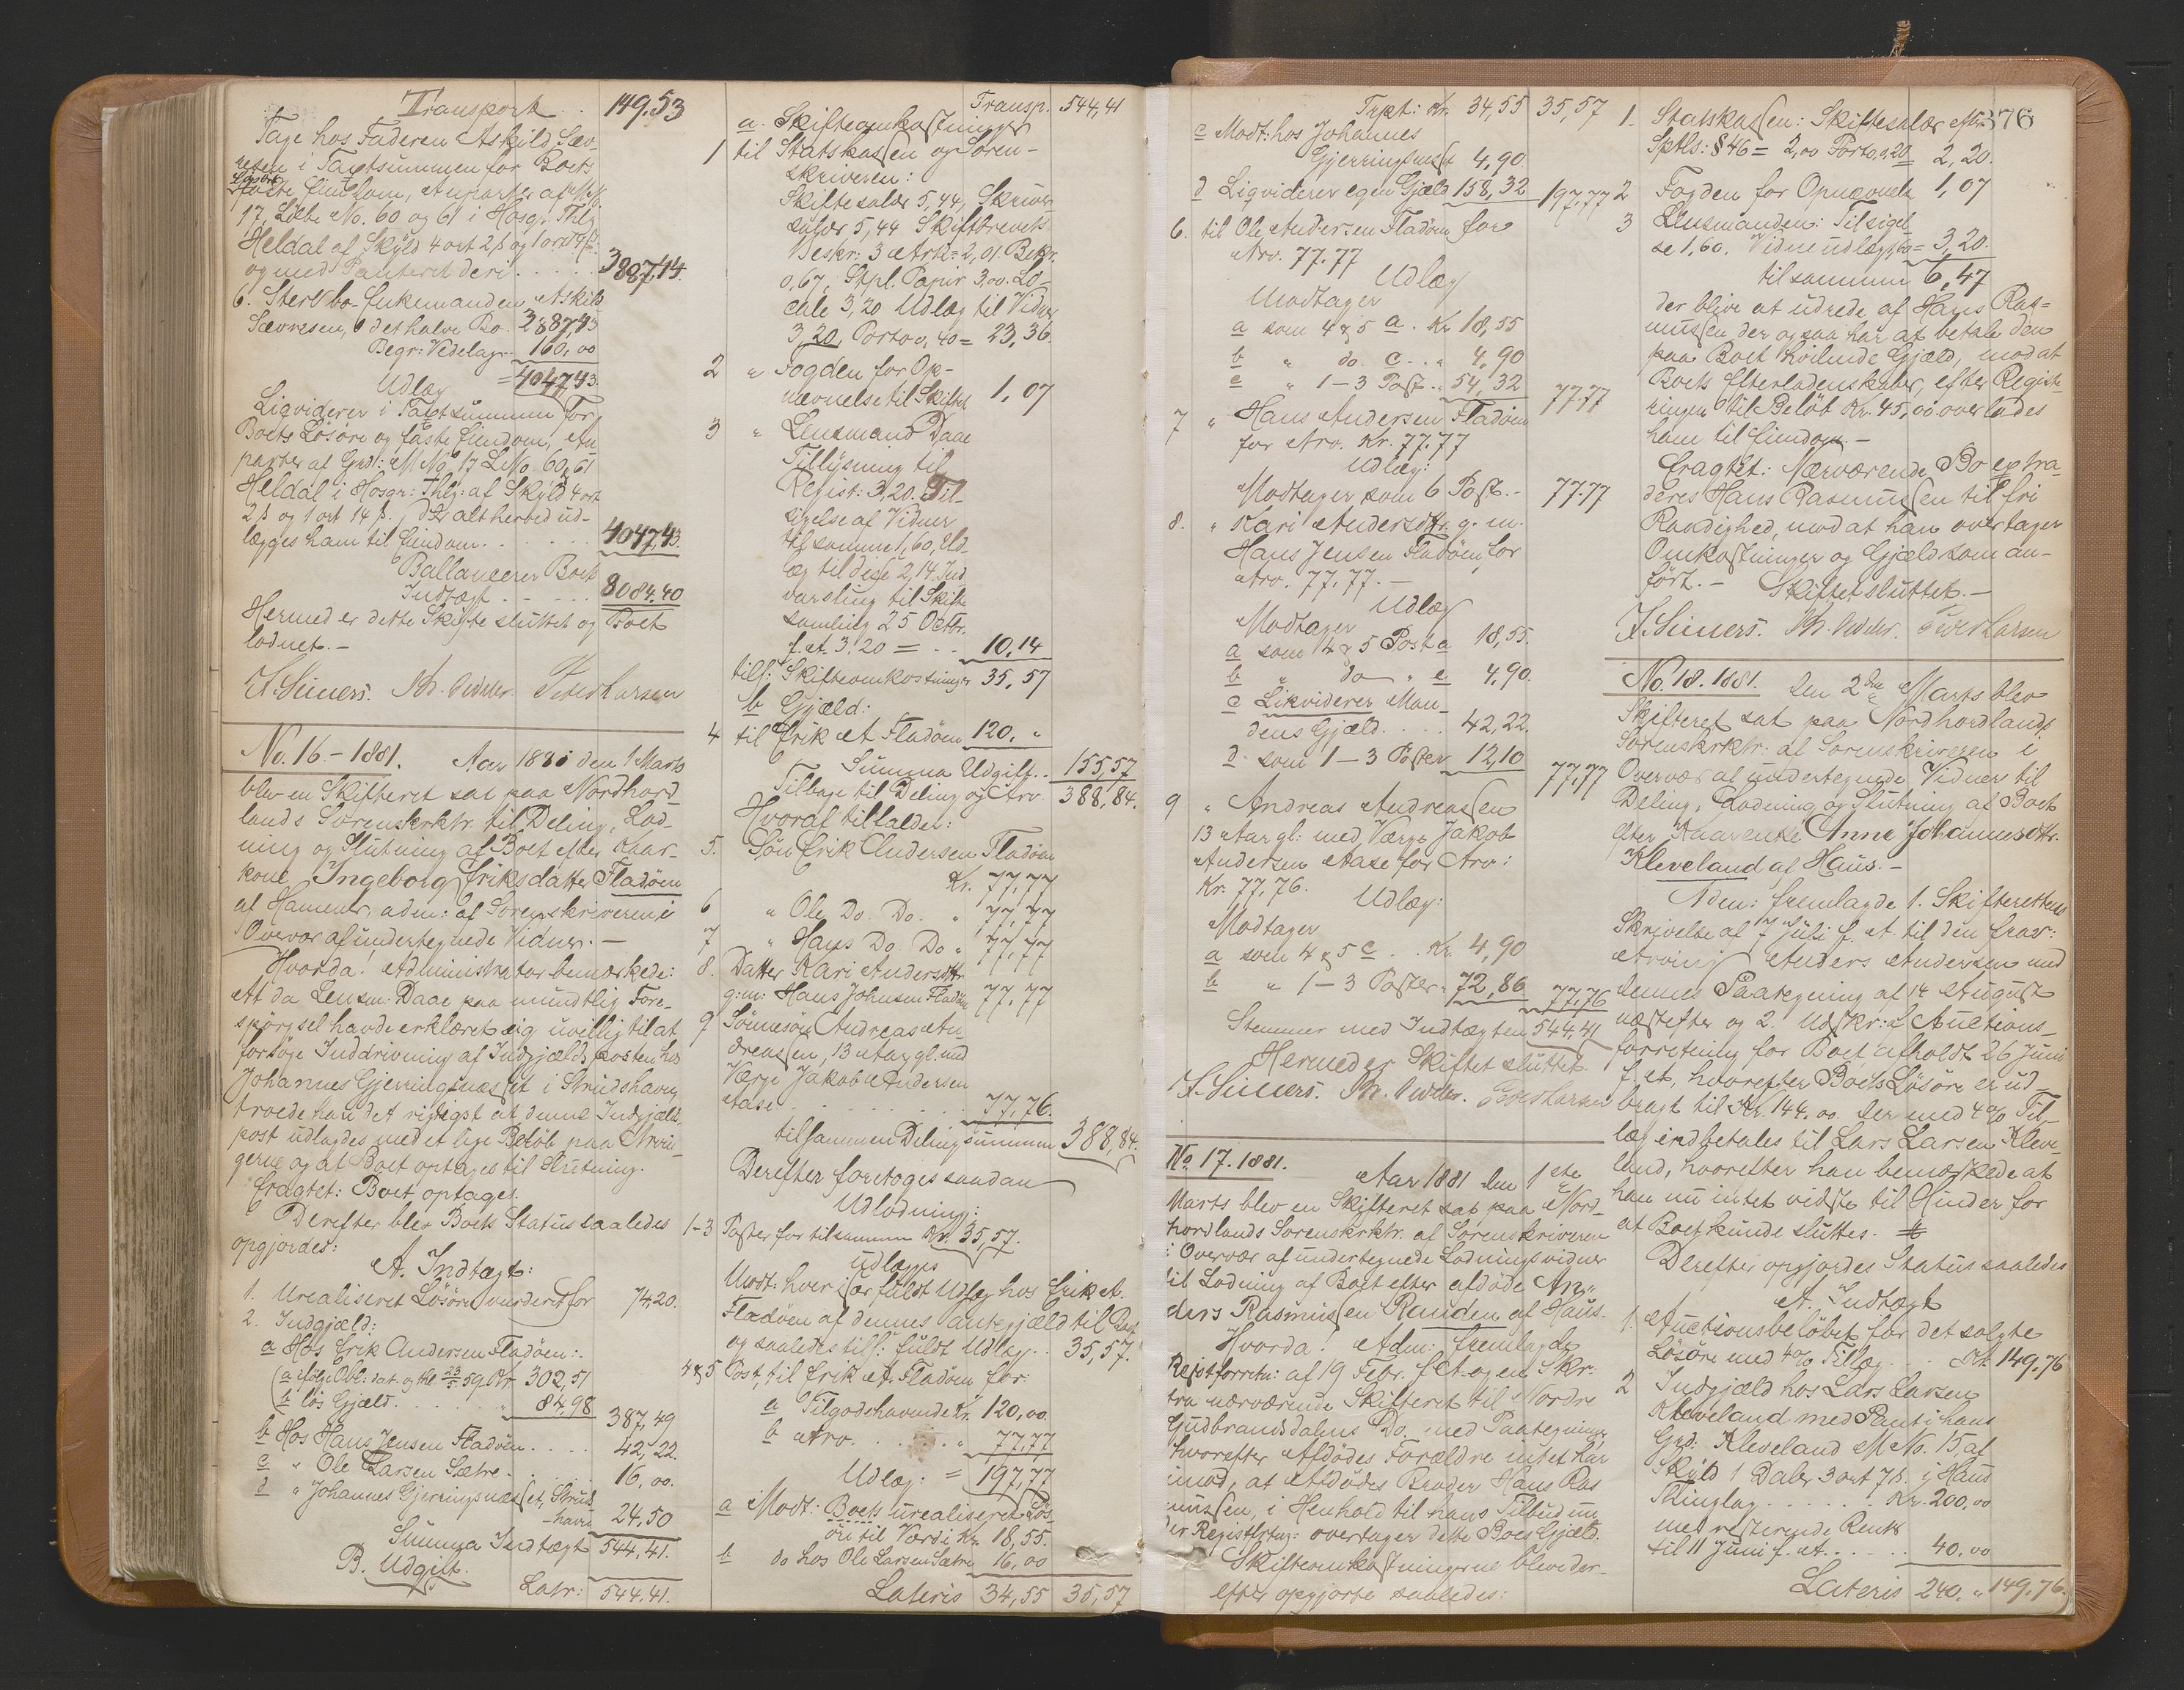 Transport . . 149.53
Tage hos Faderen Askild Sæv-
resen i Taxtsummen for Boets
Løsøre
faste Eiendom, Anparter af M No.
17, Løbe No. 60 og 61 i Hosgr. Thlg
Heldal af Skyld 4 ort 2 ß og 1 ort 14 ß.
og med Panteret deri . . . . . 3887,44.
6. Sterbbo-Enkemanden Askild
Sævresen, det halve Bo. 3887,43
Begr: Vederlag. 160,00
Udlæg = 4047,43.
Liqviderer i Taxtsummen for
Boets Løsøre og faste Eiendom, An
parter af Grd: M No 17 L No. 60 & 61
Heldal i Hosgr: Thlg: af Skyld 4 ort
2 ß og 1 ort 14 ß. alt herved ud-
lægges ham til Eiendom . . . . . 4047,43.
Ballancerer Boets
Indtægt . . . . . 8084.40
Hermed er dette Skifte sluttet og Boet
lodnet. –
Peter Larsen
No. 16. – 1881. Aar 1881 den 1 Marts
blev en Skifteret sat paa Nordhord-
lands Sorenskrktr. til Deling, Lod-
ning og Slutning af Boet efter Aar-
kone Ingeborg Eriksdatter Fladøen
af Hammer, adm: af Sorenskriveren i
Overvær af undertegnede Vidner. –
Hvorda! Administrator bemærkede:
At da Lensm: Daae paa mundtlig Fore-
spørgsel havde erklæret sig uvillig til at
forsøge Inddrivning af Indgjældsposten hos
Johannes Gjerringsnæsset i Strudshavn,
troede han det rigtigst at denne Indgjælds-
post udlagdes med et lige Beløb paa Arvin-
gerne og at Boet optages til Slutning.
Eragtet: Boet optages.
Derefter blev Boets Status saaledes
opgjordes:
A. Indtægt:
1. Urealiseret Løsøre vurderet for 74,20.
2. Indgjæld:
a Hos Erik Andersen Fladøen:
(a ifølge Obl: dat. og thl 23/5 59 Kr 302,51
(b løs Gjæld . . . . . „ 84,98 387,49
b Hos Hans Jensen Fladøen . . . . 42,22.
c „ Ole Larsen Sætre . . 16,00.
d „ Johannes Gjerringsnæsset, Struds-
havn 24,50
Summa Indtægt 544,41.
B. Udgift.
Latr: 544.41.
Transp. 544,41
a. Skifteomkostninger
1 til Statskassen og Soren-
skriveren:
Skiftesalær 5,44, Skriver-
salær 5,44 Skiftebrevets
Beskr: 3 Ark = 2,01. Bekr.
0,67, Stpl. Papir 3,00. Lo-
cale 3,20 Udlæg til Vidner
3,20, Porto 0,40 = 23,36.
2 „ Fogden for Op-
nævnelse til Skiftet 1,07
3 „ Lensmand Daae
Tillysning til
Regist: 3,20. Til-
sigelse af Vidner
tilsammen 1,60, Ud-
læg til disse 2,14. Ind
varsling til Skifte
samling 25 Octbr.
f. A. 3,20 = . . 10,14
tils: Skifteomkostninger 35,57
b Gjæld:
4 til Erik A. Fladøen 120. „
Summa Udgift . . 155,57
Tilbage til Deling og Arv. 388,84.
Hvoraf tilfalder:
5. Søn Erik Andersen Fladøen
Kr. 77,77
6 „ Ole Do. Do. „ 77,77
7 „ Hans Do. Do „ 77,77
8. Datter Kari Andersdttr.
g:m: Hans Johnsen Fladøen 77,77
9 Sønnesøn Andreas An-
dreassen, 13 Aar gl. med
Værge Jakob Andersen
Aase . . . . . 77,76.
tilsammen Delingssummen 388,84.
Derefter foretoges saadan
Udlodning:
1-3 Poster for tilsammen Kr. 35,57.
udlægges
Modt: hver især fuldt Udlæg hos Erik A.
Fladøen af dennes Pantegjæld til Boet
og saaledes tils: fuldt Udlæg . . 35,57.
4 & 5 Post, til Erik A. Fladøen for:
a Tilgodehavende Kr. 120,00.
b Arv . . . . . „ 77,77
Udlæg: = 197,77
a Modt: Boets urealiseret Løs-
øre til Værdi Kr. 18,55.
b do hos Ole Larsen Sætre 16,00
Lateris 34,55 35,57
Trpt: Kr. 34,55 35,57
c Modt: hos Johannes
Gjerringsnæsset 4,90.
d Liqviderer egen Gjæld 158,32 197,77
6. til Ole Andersen Fladøen for
Arv. 77.77
Udlæg
Modtager
a som 4 & 5 a. Kr 18,55
b „ do. c . . „ 4,90
c „ 1-3 Post . . 54,32 77.77
7 „ Hans Andersen Fladøen
for Arv. Kr. 77.77
Udlæg:
Modtager som 6 Post. – 77.77
8. „ Kari Andersdttr. g. m.
Hans Jensen Fladøen for
Arv. 77,77. –
Udlæg
Modtager
a som 4 & 5 Post a 18,55.
b „ do „ c 4,90.
c Likviderer Man-
dens Gjæld . . . . 42,22.
d. som 1-3 Poster 12,10 77,77
9 „ Andreas Andreassen
13 Aar gl: med Værge Jakob
Andersen Aase for Arv:
Kr: 77,76.
Udlæg:
Modtager
a som 4 & 5 c . . Kr. 4,90
b „ 1-3 Poster „ 72,86 77,76
Stemmer med Indtægten 544,41
Hermed er Skiftet sluttet.
No. 17. 1881. Aar 1881 den 1ste
Marts blev en Skifteret sat paa Nord-
hordlands Sorenskrktr. af Sorenskriveren
i Overvær af undertegnede Lodningsvidner
til Lodning af Boet efter afdøde An-
ders Rasmussen Rauden af Haus.
Hvorda! Adm: fremlagde
Registforretn: af 19 Febr. f. A. og en Skr:
fra nærværende Skifteret til Nordre
Gudbrandsdalens Do. med Paategning
hvorefter Afdødes Forældre intet har
imod, at Afdødes Broder Hans Ras
mussen, i Henhold til hans Tilbud un
der Registrtng: overtager dette Boes Gjæld.
Skifteomkostningerne blev der-
efter opgjorte saaledes:
376
1. Statskassen: Skiftesalær efter
Sptls: § 46 = 2,00 Porto 0,20 2,20.
2 Fogden for Opnævnelse 1,07
3 Lensmanden: Tilsigel-
se 1,60. Vidneudlæg 1,60 = 3,20.
tilsammen 6,47
der blive at udrede af Hans Ras-
mussen, der ogsaa har at betale den
paa Boet hvilende Gjæld, mod at
Boets Efterladenskaber, efter Registe
ringen til Beløb Kr. 45,00 overlades
ham til Eiendom. –
Eragtet: Nærværende Bo extra-
deres Hans Rasmussen til fri
Raadighed, mod at han overtager
Omkostninger og Gjæld som an-
ført. – Skiftet sluttet. –
Peter Larsen
No. 18. 1881. Den 2den Marts blev
Skifteret sat paa Nordhordlands
Sorenskrktr: af Sorenskriveren i
Overvær af undertegnede Vidner til
Deling, Lodning og Slutning af Boet
efter Kaarenke Anne Johannesdtr.
Kleveland af Haus. –
Aden: fremlagde 1. Skifterettens
Skrivelse af 7 Juli f. A. til den frav:
Arving Anders Andersen med
dennes Paategning af 14 August
næstefter og 2. Udskr: af Auctions-
forretning for Boet afholdt 26 Juni
f. A., hvorefter Boets Løsøre er ud-
bragt til Kr. 144.00 der med 4% Til-
læg indbetales til Lars Larsen Kleve-
land, hvorefter han bemærkede at
han nu intet vidste til Hinder for
at Boet kunde sluttes.
Derefter opgjordes Status saaledes
A. Indtægt
1. Auctionsbeløbet for det solgte
Løsøre med 4% Tillæg . . . Kr. 149,76
2 Indgjæld hos Lars Larsen
Kleveland med Pant i hans
Grd: Kleveland M No. 15, af
Skyld 1 Daler 3 ort 7 ß. i Haus
Thinglag . . . . . Kr. 200,00
med resterende Rente
til 11 Juni f. A. . . . . 40.00
Lateris 240. „ 149,76.